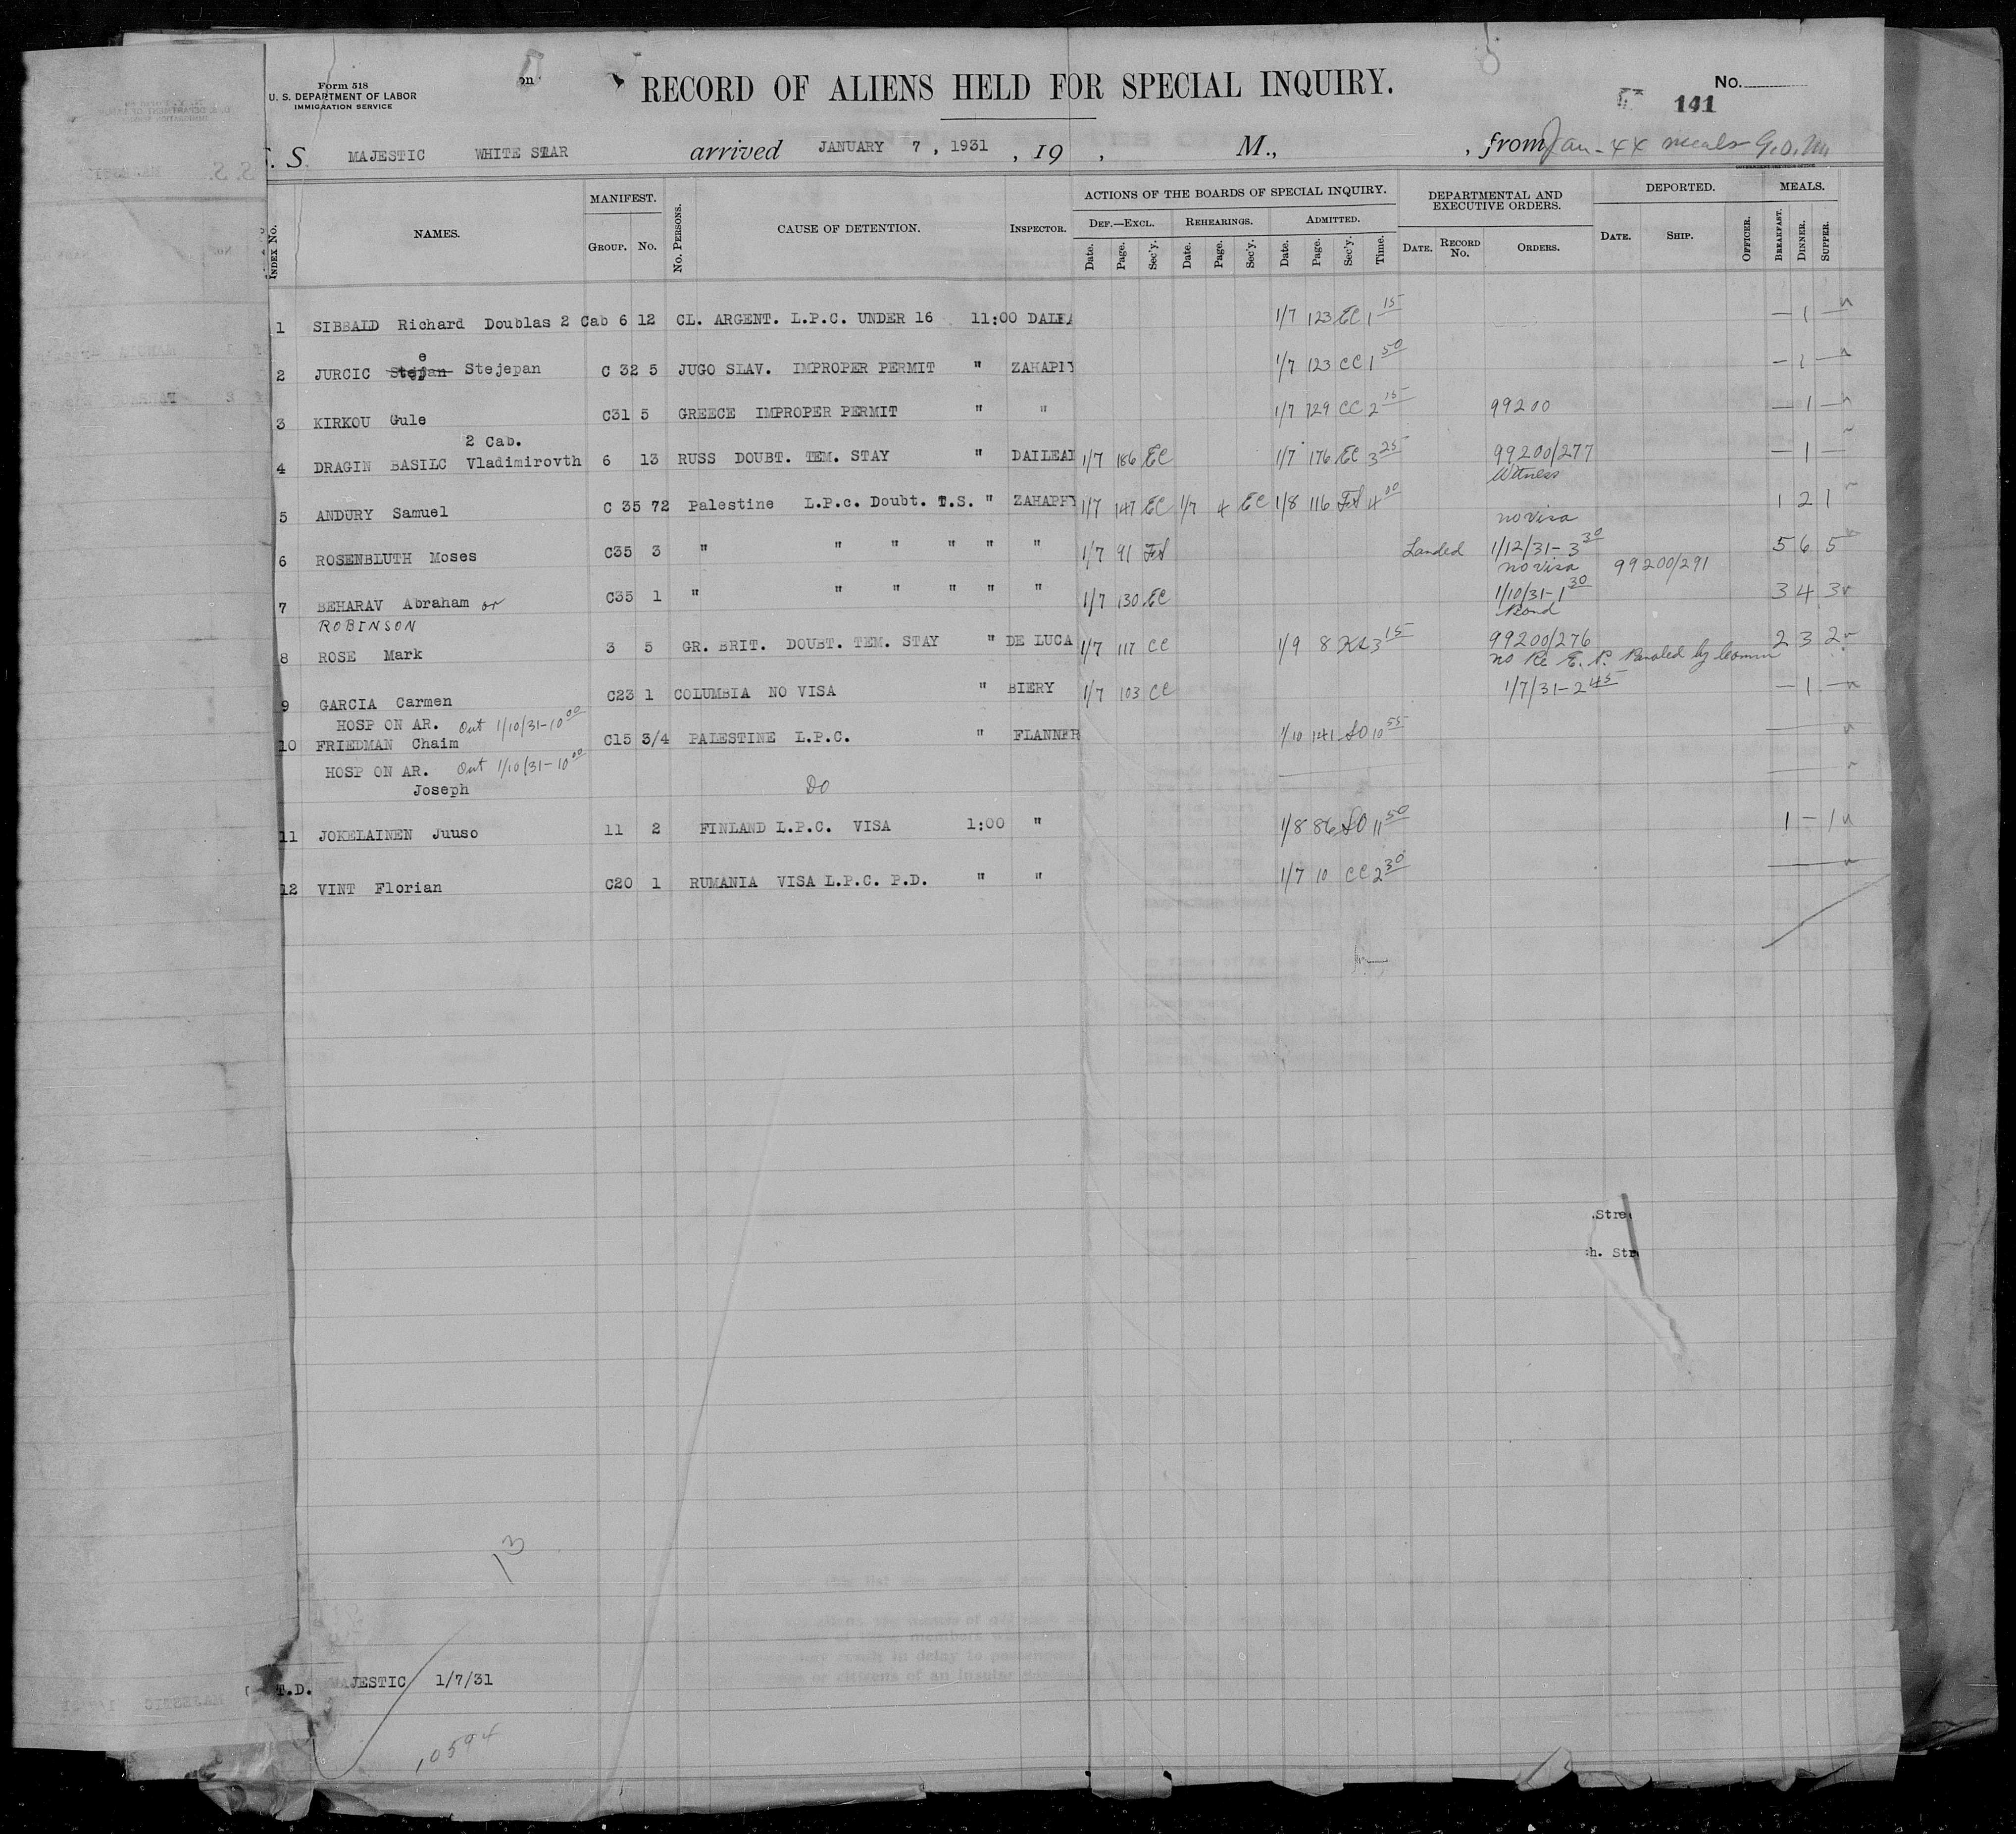 Form 518
U. S. DEPARTMENT OF LABOR
IMMIGRATION SERVICE
RECORD OF ALIENS HELD FOR SPECIAL INQUIRY.
No.
141
S. S. MAJESTIC WHITE STAR arrived JANUARY 7, 1931, 19 , M., , from Jan - 44 meals G.O.M.
INDEX No. NAMES. MANIFEST. GROUP. No. No. PERSONS. CAUSE OF DETENTION. INSPECTOR. ACTIONS OF THE BOARDS OF SPECIAL INQUIRY. DEF.—EXCL. Date. Page. Sec'y. REHEARINGS. Date. Page. Sec'y. ADMITTED. Date. Page. Sec'y. Time. DEPARTMENTAL AND EXECUTIVE ORDERS. DATE. RECORD No. ORDERS. DEPORTED. DATE. SHIP. OFFICER. MEALS. BREAKFAST. DINNER. SUPPER.
1 SIBBALD Richard Doublas 2 Cab 6 12 CL. ARGENT. L.P.C. UNDER 16 11:00 DAILEA 1/7 123 EC 1 15 — 1 —
2 JURCIC Stepan e Stejepan C 32 5 JUGO SLAV. IMPROPER PERMIT " ZAHAPHY 1/7 123 CC 1 50 — 1 —
3 KIRKOU Gule C31 5 GREECE IMPROPER PERMIT " " 1/7 129 CC 2 15 99200 — 1 —
2 Cab.
4 DRAGIN BASILC Vladimirovth 6 13 RUSS DOUBT. TEM. STAY " DAILEAD 1/7 186 EC 1/7 176 EC 3 25 99200/277 — 1 —
Witness
5 ANDURY Samuel C 35 72 Palestine L.P.c. Doubt. T.S. " ZAHAPHY 1/7 147 EC 1/7 4 EC 1/8 116 4 00 1 2 1
no visa
6 ROSENBLUTH Moses C35 3 " " " " " " 1/7 91 Landed 1/12/31 - 3 30 5 6 5
no visa 99200/291
7 BEHARAV Abraham or C35 1 " " " " " " 1/7 130 EC 1/10/31 - 1 30 3 4 3
ROBINSON Bond
8 ROSE Mark 3 5 GR. BRIT. DOUBT. TEM. STAY " DE LUCA 1/7 117 CC 1/9 8 3 15 99200/276 2 3 2
no Re E. P. Paroled by Comm
9 GARCIA Carmen C23 1 COLUMBIA NO VISA " BIERY 1/7 103 CC 1/7/31 - 2 45 — 1 —
HOSP ON AR. Out 1/10/31 - 10 00
10 FRIEDMAN Chaim C15 3/4 PALESTINE L.P.C. " FLANNER 1/10 141 SO 10 55
HOSP ON AR. Out 1/10/31 - 10 00
Joseph Do
11 JOKELAINEN Juuso 11 2 FINLAND L.P.C. VISA 1:00 " 1/8 86 SO 11 50 1 — 1
12 VINT Florian C20 1 RUMANIA VISA L.P.C. P.D. " " 1/7 10 CC 2 30
.Stre
h. Str
13
T.D. MAJESTIC 1/7/31
10594